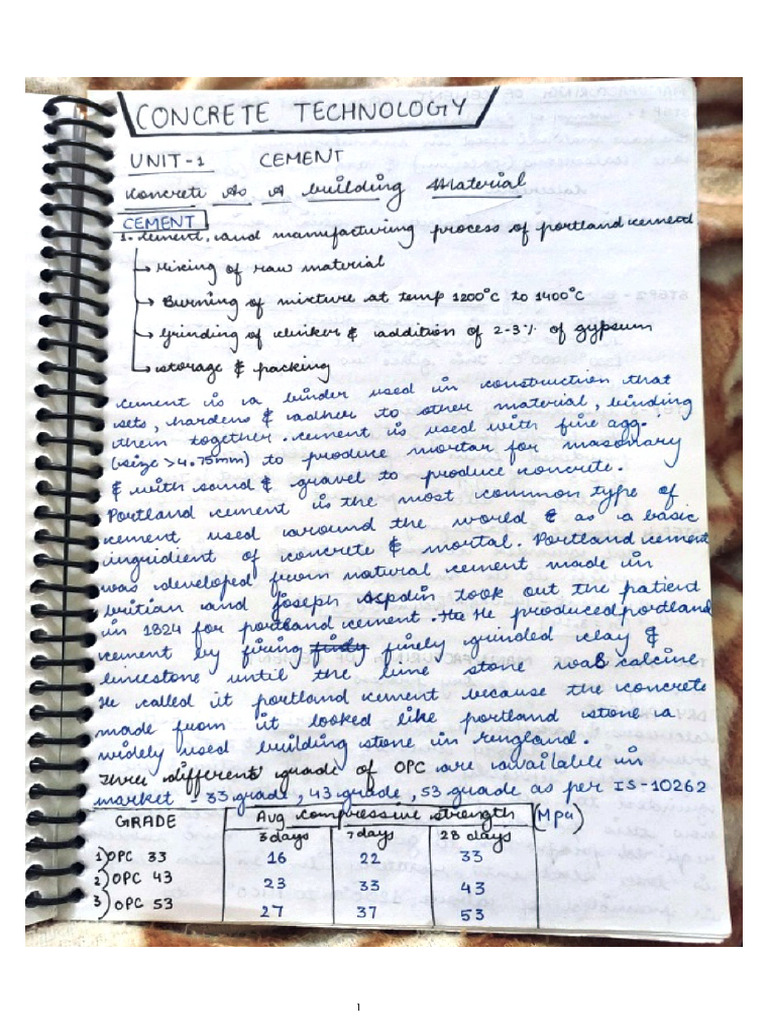 CONCRETE TECHNOLOGY
UNIT-1 CEMENT
Concrete As A building Material
CEMENT
1. Cement, and manufacturing process of portland cement
→ Mixing of raw material
→ Burning of mixture at temp 1200°C to 1400°C
→ Grinding of clinker & addition of 2-3% of gypsum
→ storage & packing
cement is a binder used in construction that
sets, hardens & adher to other material, binding
them together. cement is used with fine agg.
(size >4.75mm) to produce mortar for masonary
& with sand & gravel to produce concrete.
Portland cement is the most common type of
cement used around the world & as a basic
inguidient of concrete & mortal. Portland cement
was developed from natural cement made in
britian and Joseph Aspdin took out the patient
in 1824 for portland cement. He He produced portland
cement by firing finely grinded clay &
limestone until the lime stone was calcine
He called it portland cement because the concrete
made from it looked like portland stone a
widely used building stone in england.
Three different grade of OPC are available in
market - 33 grade, 43 grade, 53 grade as per IS-10262
GRADE Avg compressive strength (MPa)
3 days 7 days 28 days
1) OPC 33 16 22 33
2) OPC 43 23 33 43
3) OPC 53 27 37 53
1